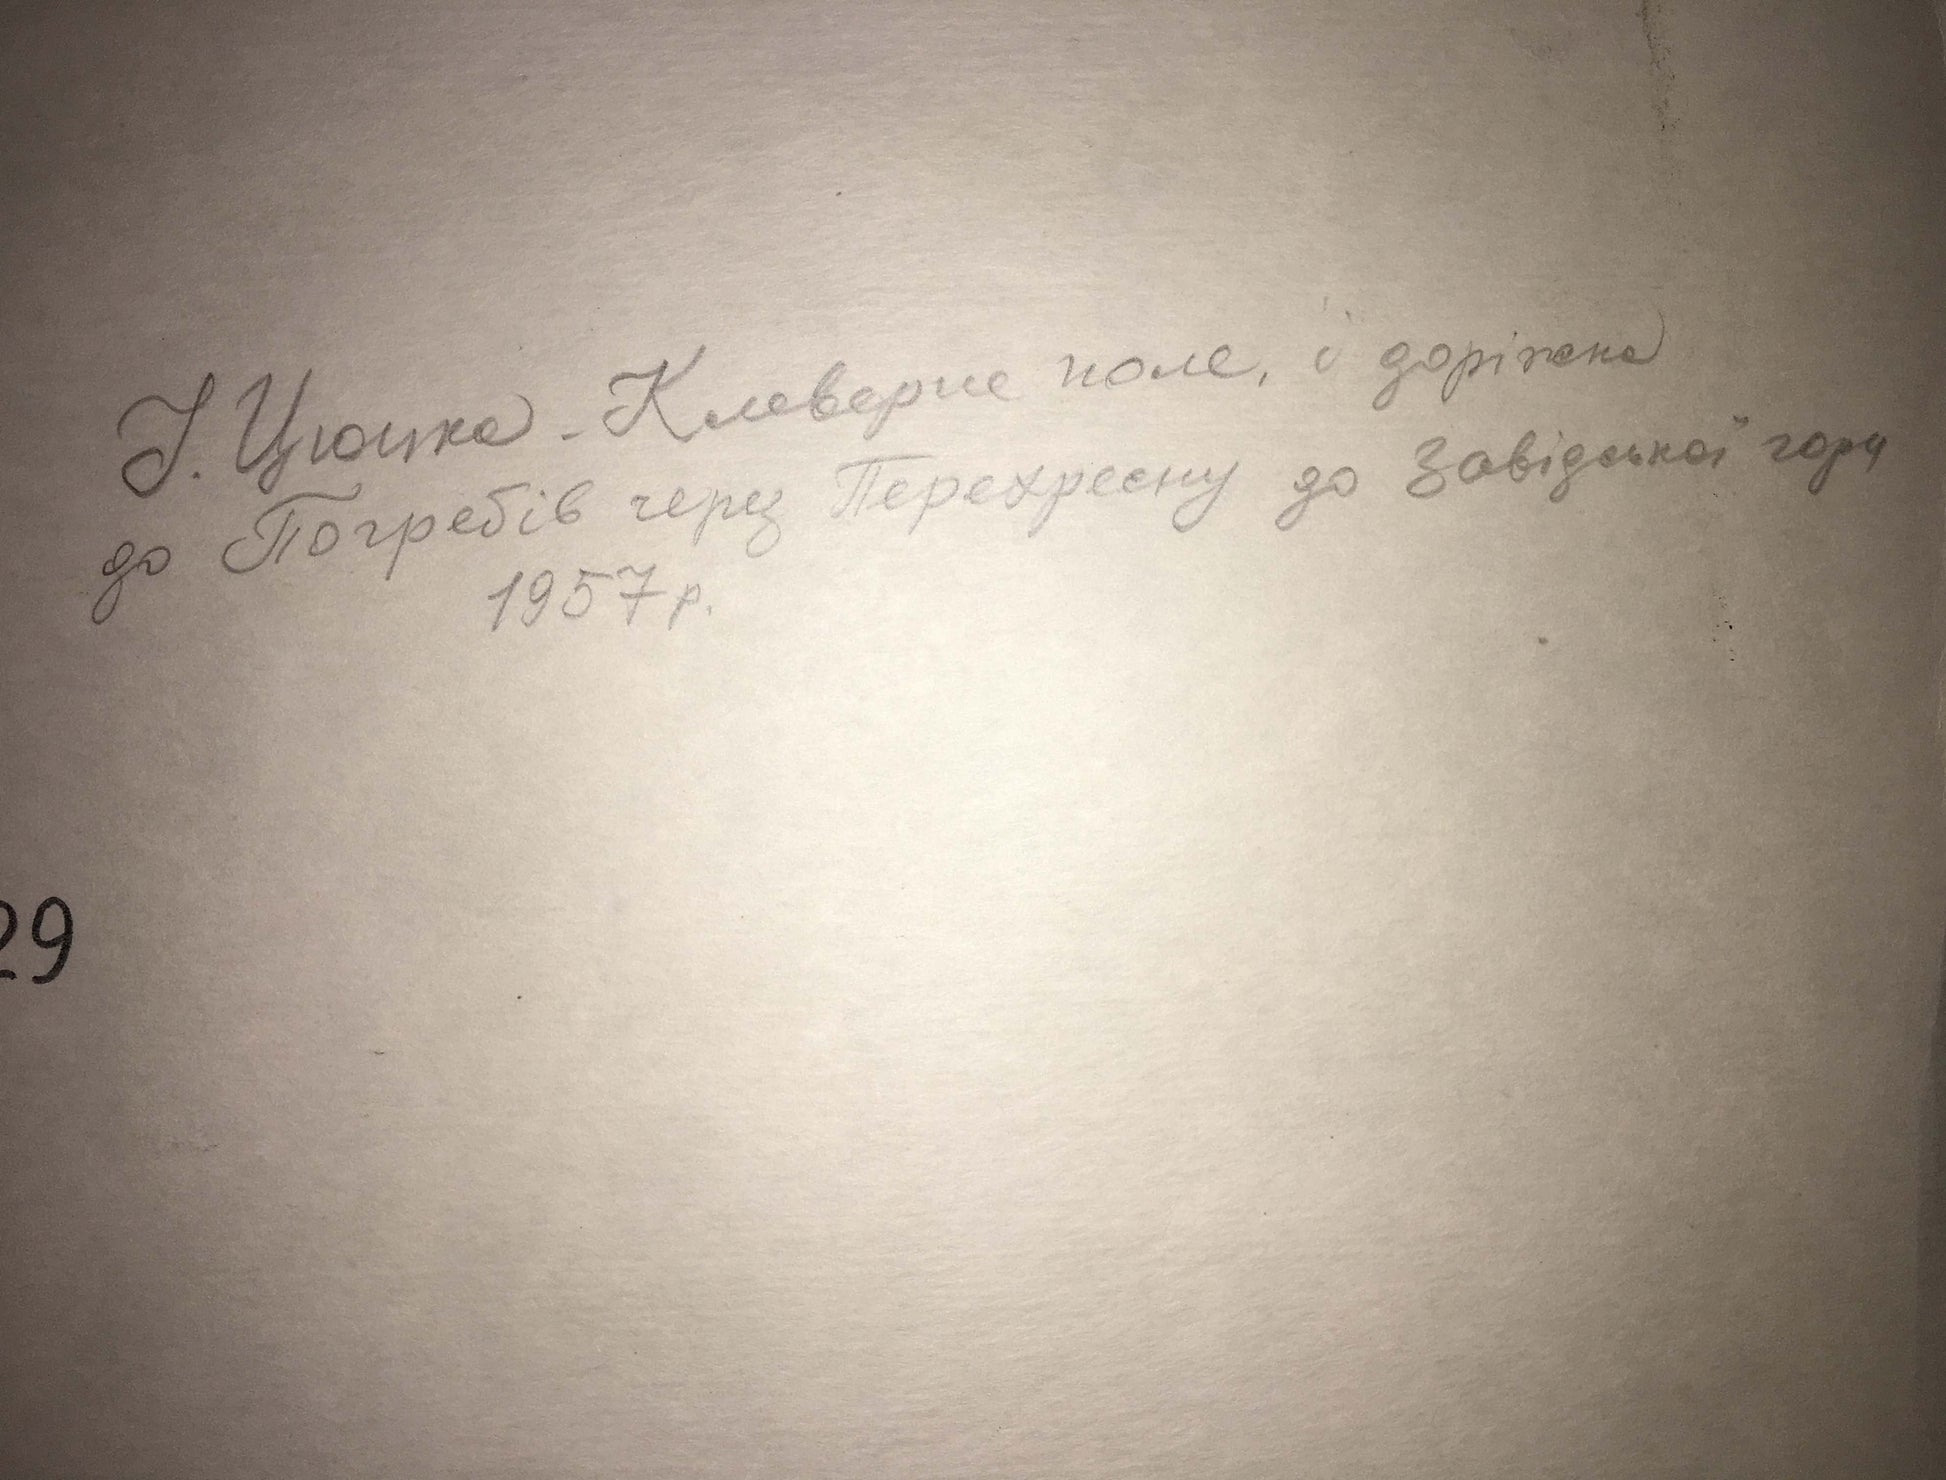 І. Цюпка - Клеверне поле, і доріжка
до Погребів через Перехресну до Завідської гори
1957 р.
29